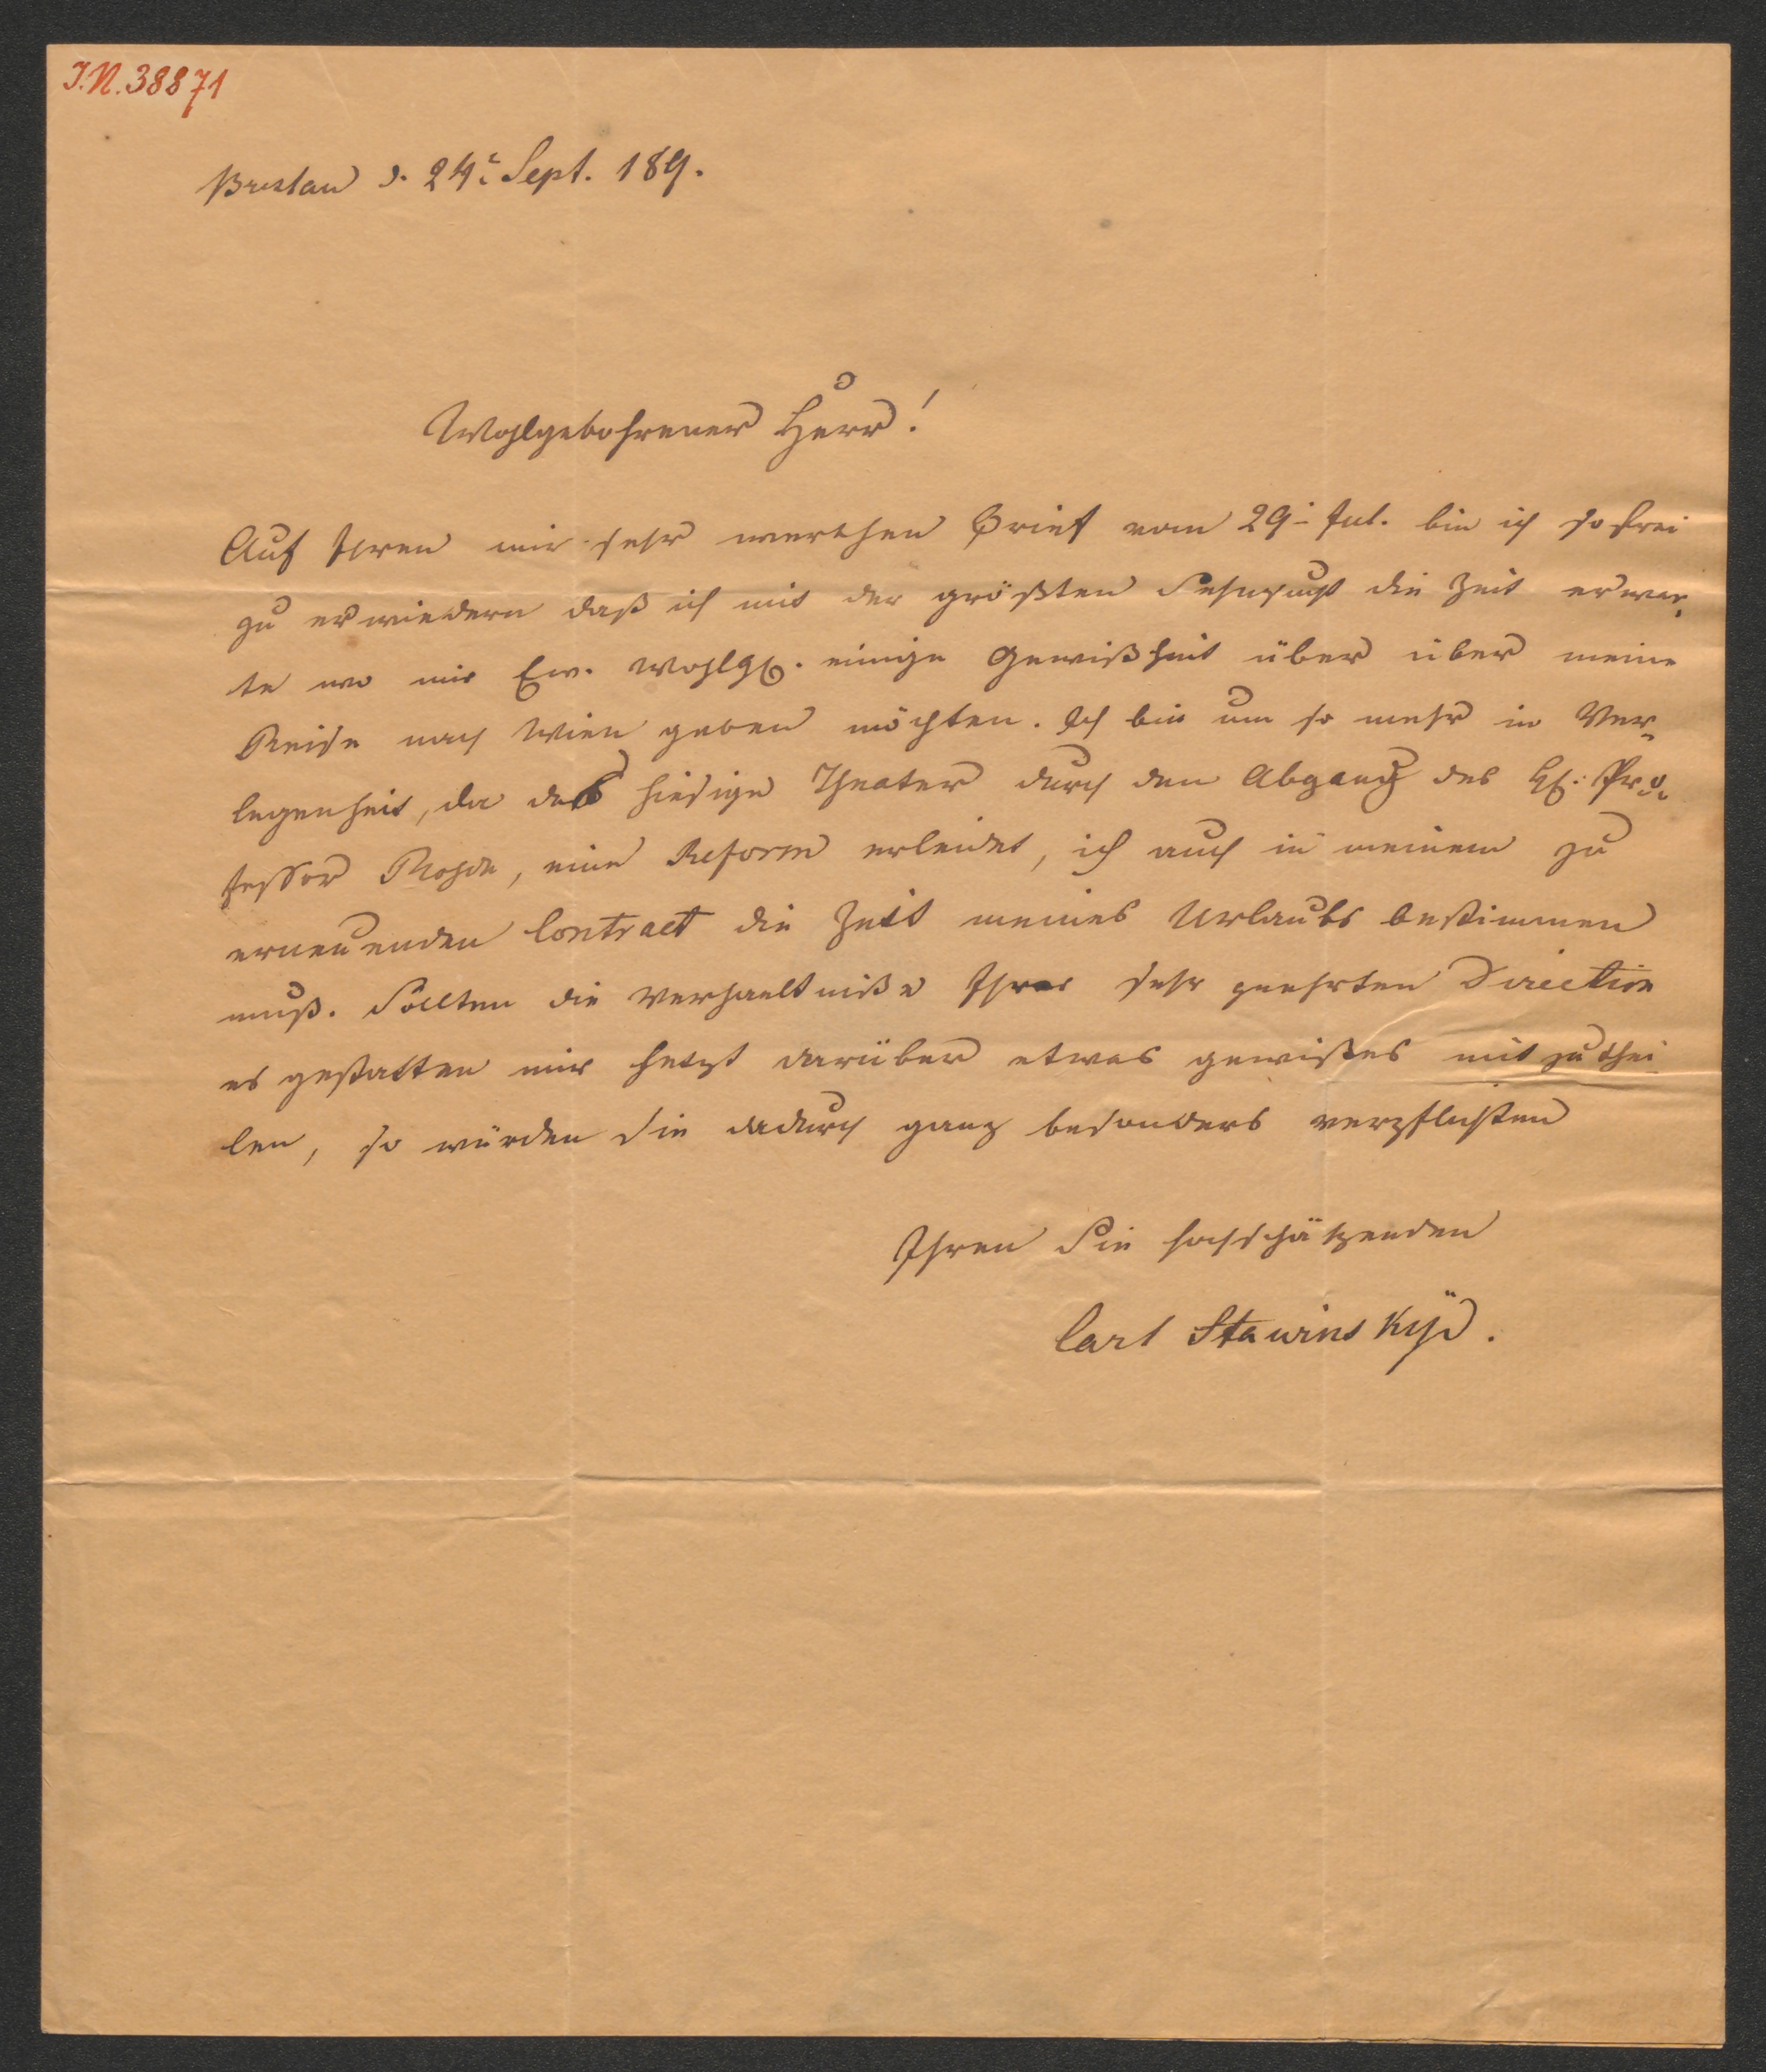 I.N. 38871
Breslau d. 24t Sept. 189.
Wohlgebohrener Herr!
Auf Ihren mir sehr werthen Brief vom 29t Jul. bin ich so frei
zu erwiedern daß ich mit der größten Sehnsucht die Zeit erwar¬
te wo mir Ew. Wohlgb. einige Gewißheit über über meine
Reise nach Wien geben möchten. Ich bin um so mehr in Ver¬
legenheit, da das hiesige Theater durch den Abgang des H: Pro¬
fessor Rhode, eine Reform erleidet, ich auch in meinem zu
erneuenden Contract die Zeit meines Urlaubs bestimmen
muß. Sollten die Verhaeltniße Ihrer sehr geehrten Direction
es gestatten mir jetzt darüber etwas gewißes mit zu thei
len, so würden Sie dadurch ganz besonders verpflichten
Ihren Sie hochschätzenden
Carl Stawinskÿ.